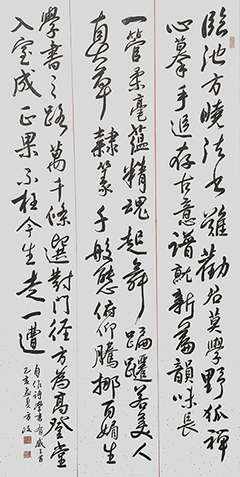 臨池方曉法書難勸君莫學野狐禪
心摹手追存古意譜就新篇韻味長
一管柔毫蘊精魂起舞蹁躚若美人
真草隸篆千般態俯仰騰挪百媚生
學書之路萬千條選對門徑方為高登堂
入室成正果不枉今生走一遭
自作詩學書有感三首